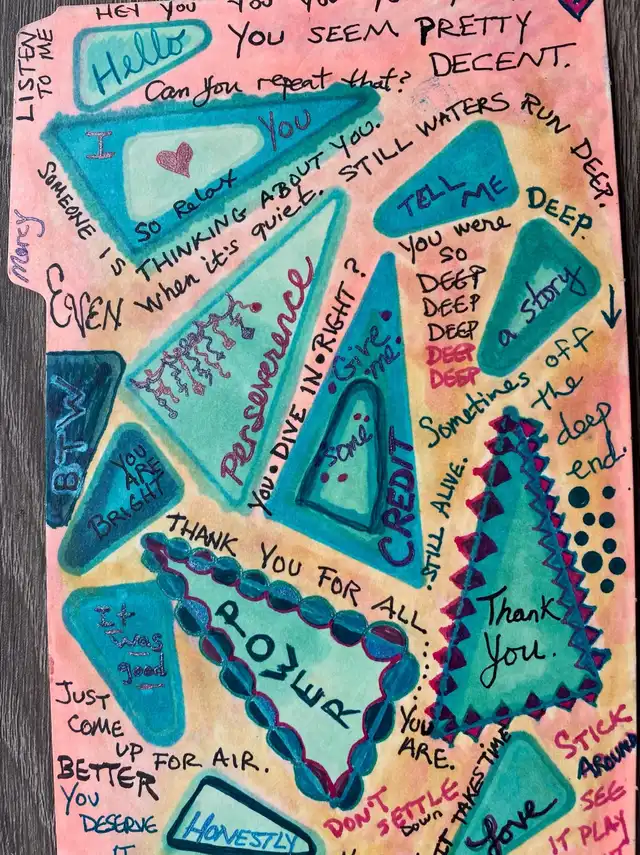 HEY YOU YOU YOU YOU YOU
LISTEN
TO ME
Hello
YOU SEEM PRETTY
DECENT.
Can you repeat that?
I
YOU
SO Relax
SOMEONE IS THINKING ABOUT YOU.
EVEN When it's quiet. STILL WATERS RUN DEEP.
Mercy
TELL
ME
DEEP.
You were
SO
DEEP
DEEP
DEEP
DEEP
DEEP
a story
Sometimes off
the
deep
end.
Perseverence
YOU • DIVE IN • RIGHT?
Give
me
some
CREDIT
BTW
YOU
ARE
BRIGHT
STILL ALIVE.
THANK YOU FOR ALL
YOU
ARE.
POWER
Thank
You.
it
was
good
JUST
COME
UP FOR AIR.
BETTER
YOU
DESERVE
IT
HONESTLY
DON'T
SETTLE
Down
IT TAKES TIME
Love
STICK
AROUND
SEE
IT PLAY